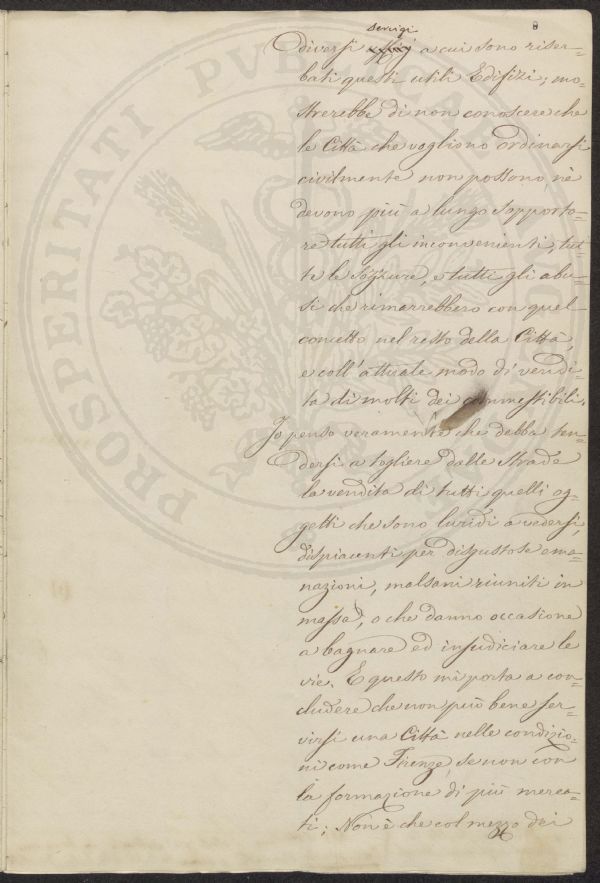 8
servigi
diversi a cui sono riser=
bati questi utili Edifizi, mo=
strerebbe di non conoscere che
le Città che vogliono ordinarsi
civilmente non possono nè
devono più a lungo sopporta=
re tutti gli inconvenienti, tut=
te le sozzure, e tutti gli abu=
si che rimarrebbero con quel
concetto nel resto della Città,
e coll'attuale modo di vendi=
ta di molti dei commestibili.
Io penso veramente che debba ten=
dersi a togliere dalle strade
la vendita di tutti quelli og=
getti che sono luridi a vedersi,
dispiacenti per disgustose ema=
nazioni, malsani riuniti in
massa, o che danno occasione
a bagnare ed insudiciare le
vie. E questo mi porta a con=
cludere che non può bene ser=
virsi una Città nelle condizio=
ni come Firenze, se non con
la formazione di più merca=
ti; Non è che col mezzo dei
PROSPERITATI PUBLICAE